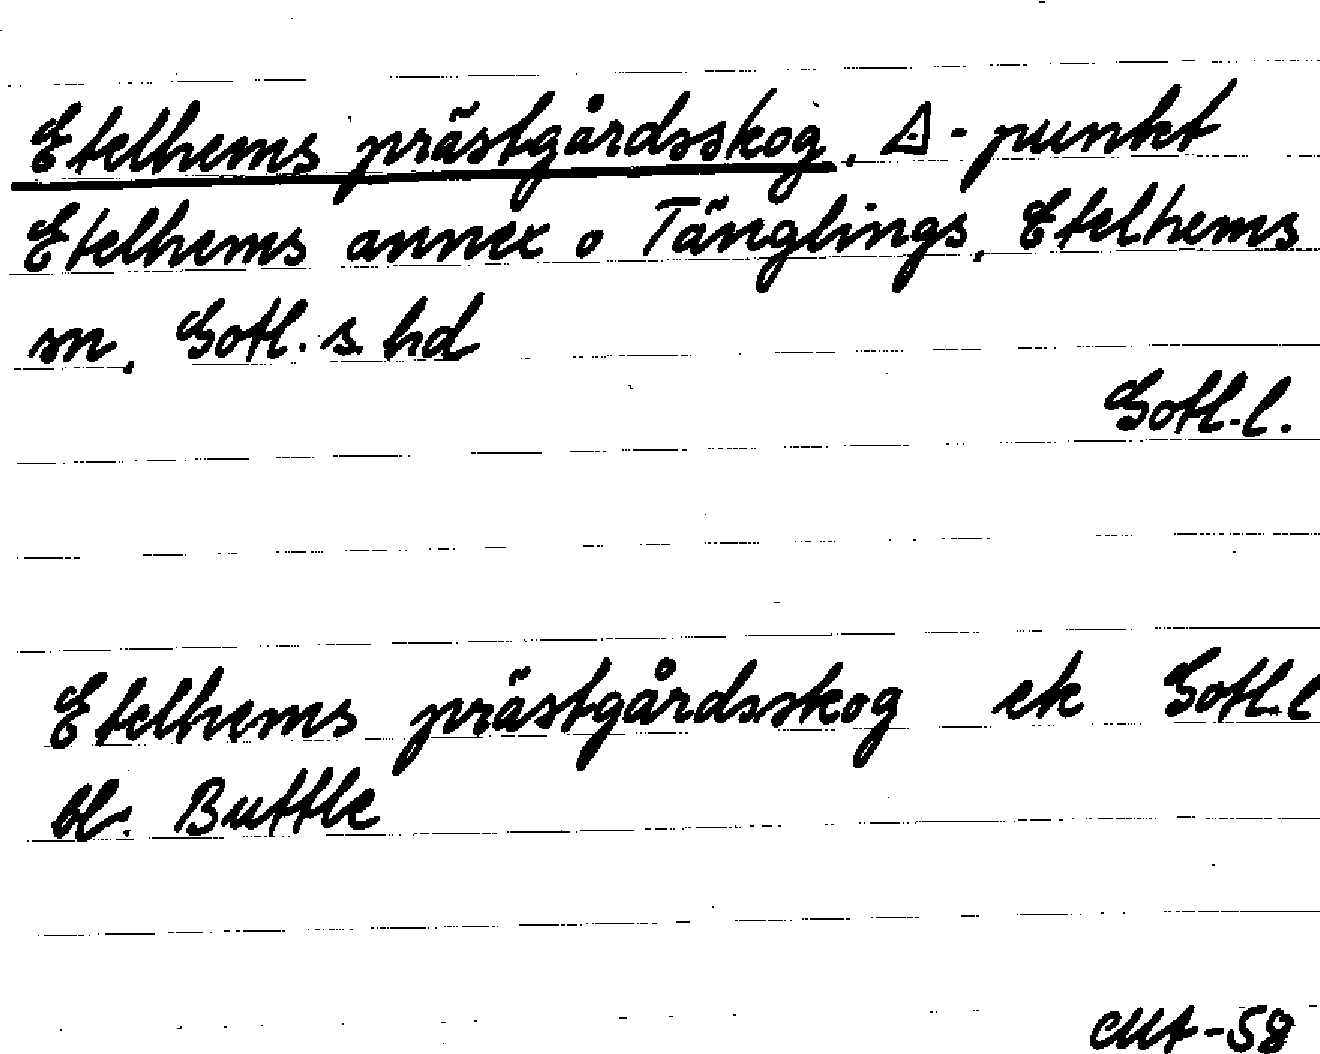 Etelhems prästgårdsskog, Δ-punkt
Etelhems annex o Tänglings, Etelhems
sn, Gotl. s. hd
Gotl.l.
Etelhems prästgårdsskog ek Gotl.l
bl. Buttle
CMA-58